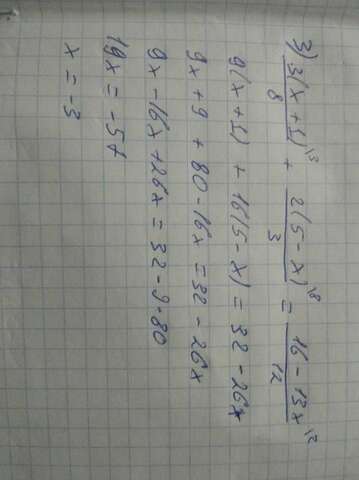 3) 3(x+1)/8 ^13 + 2(5-x)/3 ^18 = 16-13x/12 ^12
9(x+1) + 16(5-x) = 32-26x
9x+9+80-16x=32-26x
9x-16x+26x=32-9-80
19x=-57
x=-3